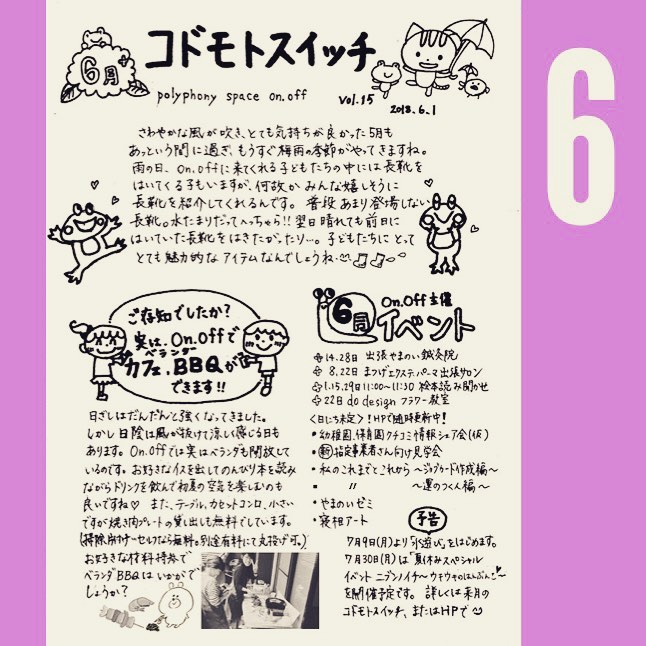 6月
コドモトスイッチ
polyphony space on.off
vol.15
2018.6.1
6
さわやかな風が吹き、とても気持ちが良かった5月も
あっという間に過ぎ、もうすぐ梅雨の季節がやってきますね。
雨の日、On.offに来てくれる子どもたちの中には長靴を
はいてくる子もいますが、何故かみんな嬉しそうに
長靴を紹介してくれるんです。普段あまり登場しない
長靴。水たまりだって入っちゃう!!翌日晴れても前日に
はいていた長靴をはきたがったり…。子どもたちにとって
とても魅力的なアイテムなんでしょうね
ご存知でしたか?
実は、On.offで
ベランダー
カフェ、BBQが
できます!!
日ざしはだんだんと強くなってきました。
しかし日陰は風が抜けて涼しく感じる日も
あります。On.offでは実はベランダも開放して
いるのです。お好きなイスを出してのんびり本を読み
ながらドリンクを飲んで初夏の空気を楽しむのも
良いですね♡ また、テーブル、カセットコンロ、小さい
ですが焼き肉プレートの貸し出しも無料でしています。
お好きな材料持参で
ベランダBBQはいかがで
しょうか?
6月
On.Off主催
イベント
14.28日 出張やまのい鍼灸院
8,22日 まつげエクステ、パーマ出張サロン
1.15.29日11:00~11:30 絵本読み聞かせ
22日 do design フラワー教室
<日にち未定>!HPで随時更新中!
・幼稚園、保育園クチコミ情報シェア会(仮)
・新指定事業者さん向け見学会
・私のこれまでとこれから ~ジョブカード作成編~
・ 〃 ~運のつくん編~
・やまのいゼミ
・寝相アート
予告
7月9日(月)より「水遊び」をはじめます。
7月30日(月)は「夏休みスペシャル
を開催予定です。詳しくは来月の
コドモトスイッチ、またはHPで